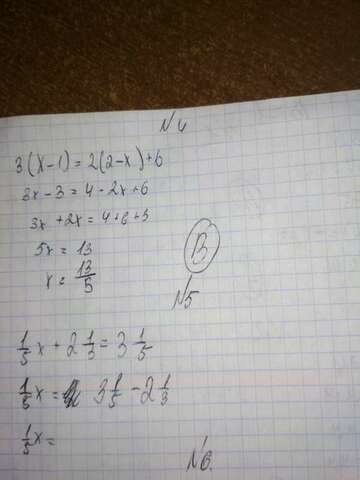 N 4
3(x-1)=2(2-x)+6
3x-3=4-2x+6
3x+2x=4+6+3
5x=13
x=13/5
B
N5
1/5 x + 2 1/3 = 3 1/5
1/5 x = 3 1/5 - 2 1/3
1/5 x =
N6.